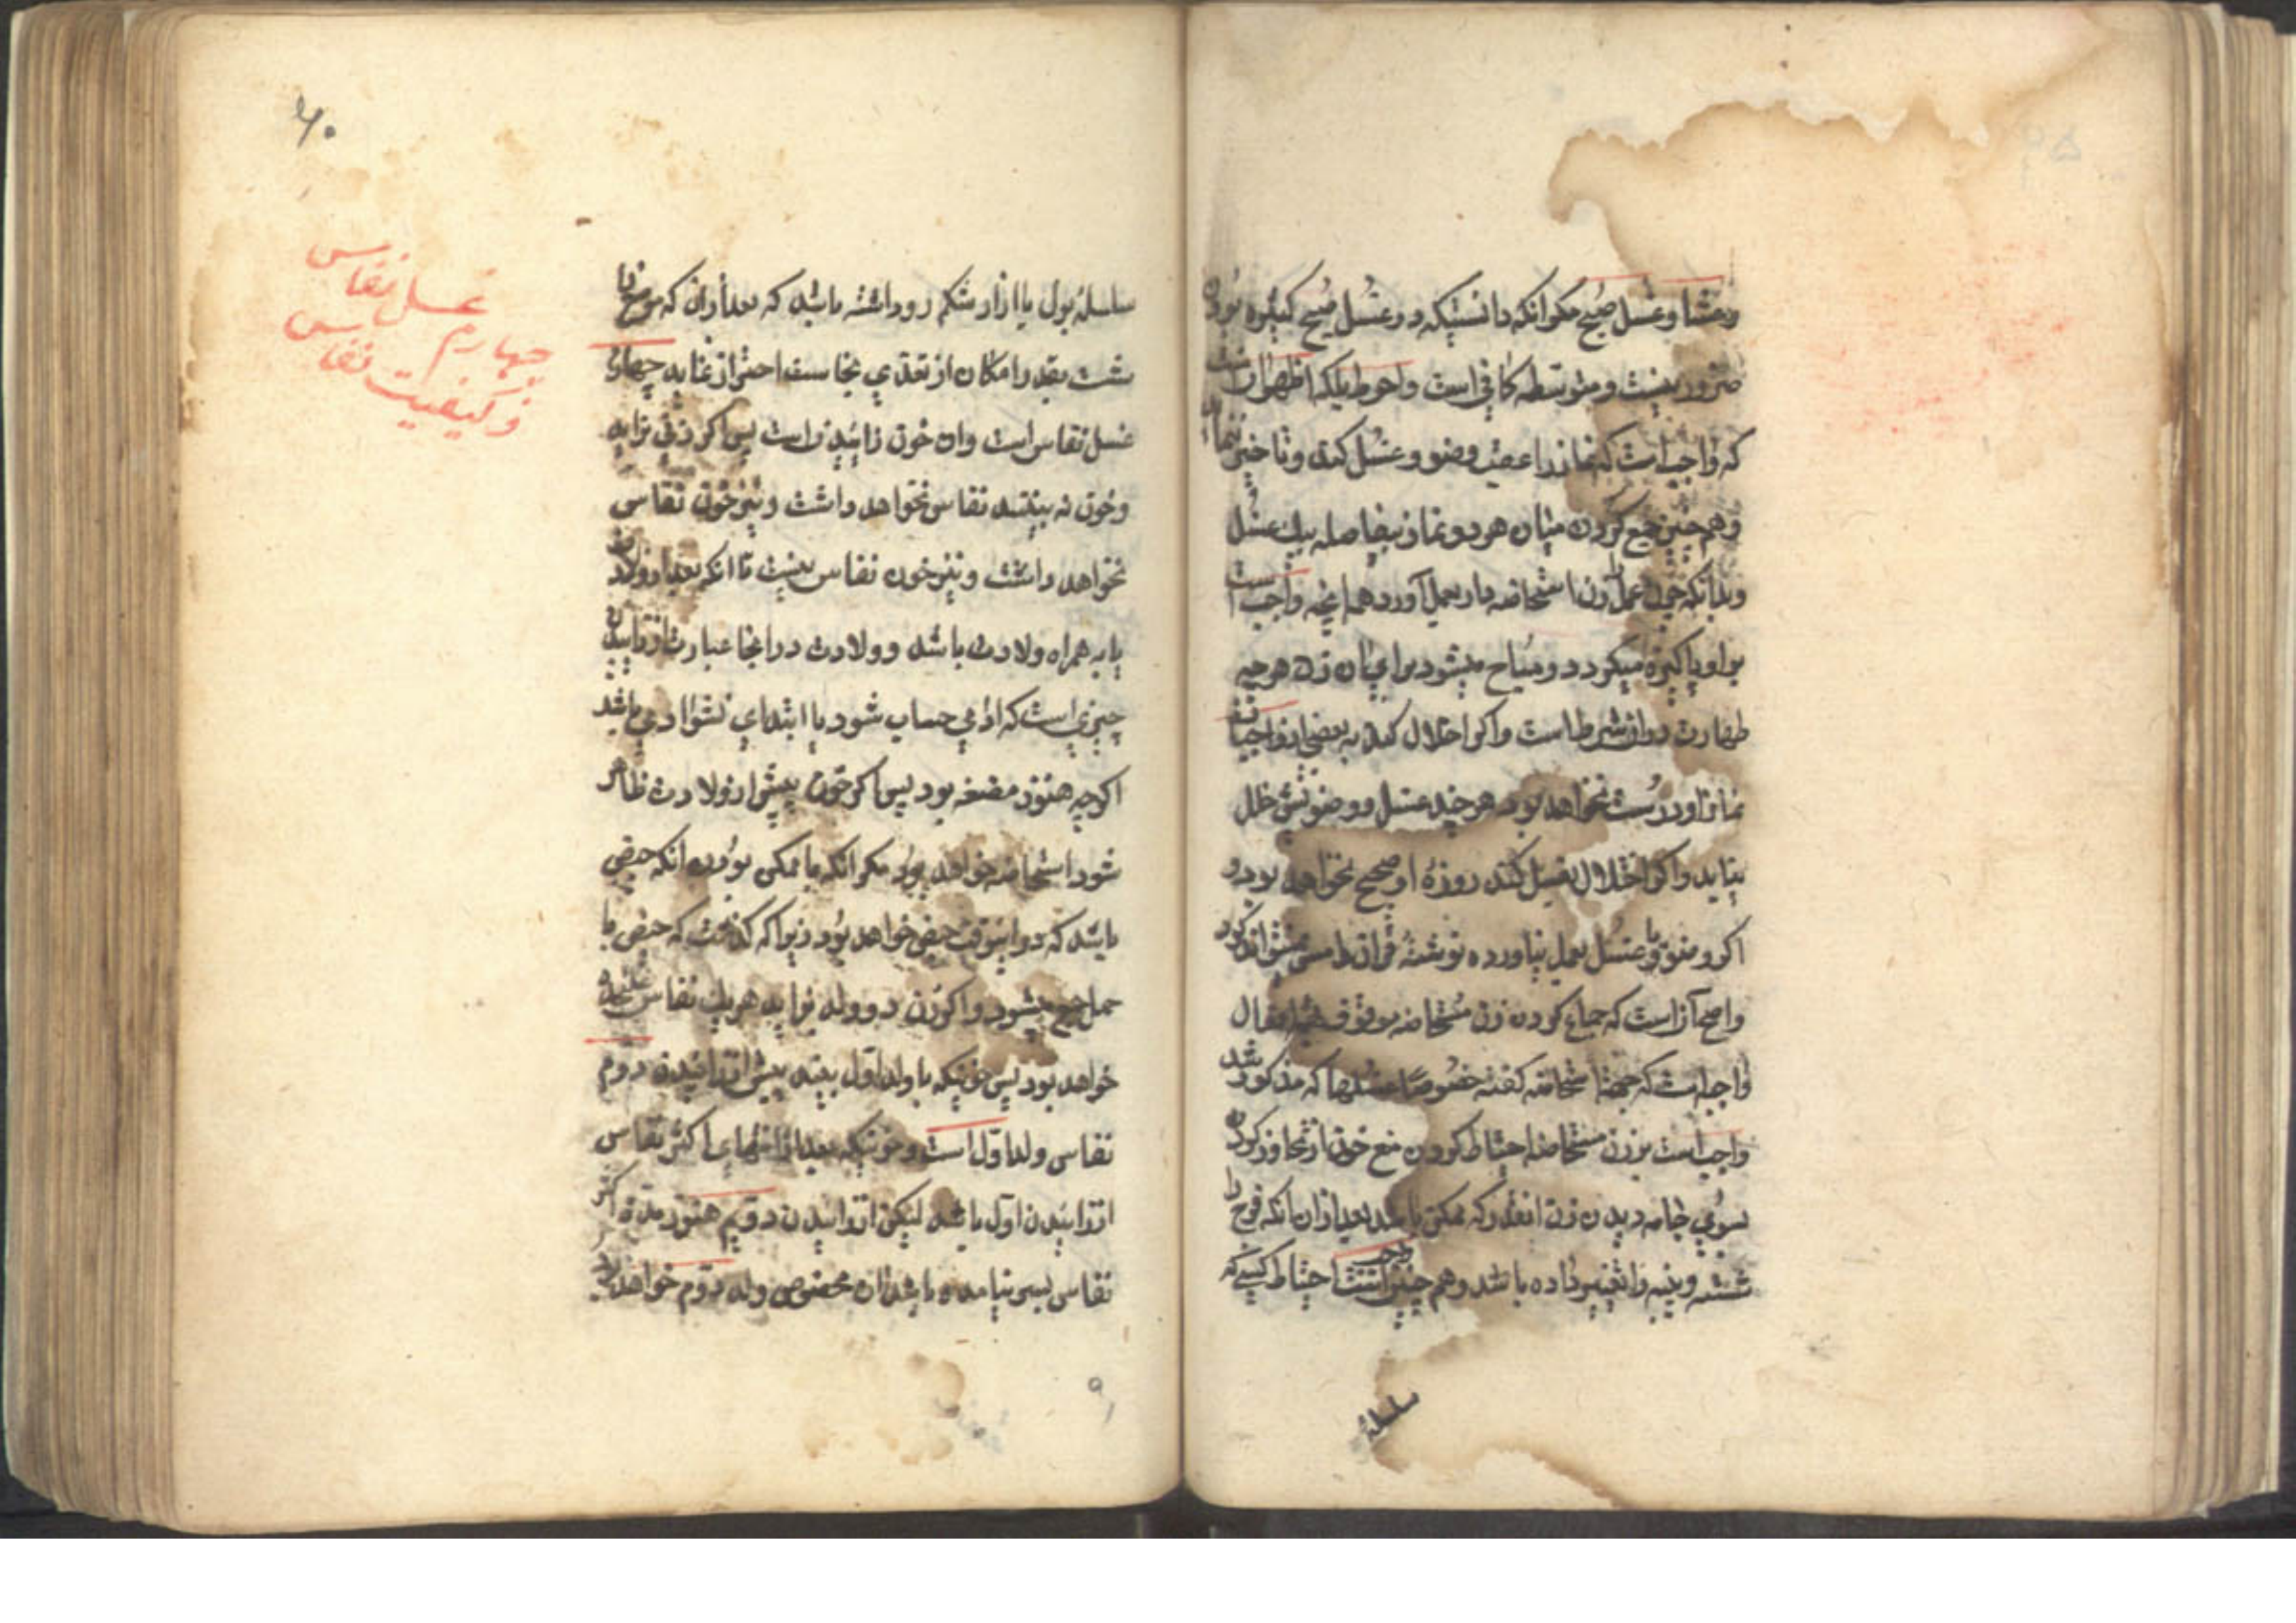 وعشا و غسل صبح مکر آنکه دانستیکه در غسل صبح کبیره بودن
ضرور نیست و متوسطه کافی است و احوط بلکه اظهر آن است
که واجب است که نماز را عقب وضو و غسل کند و تاخیر ننماید
وهم چنین جمع کردن میان هر دو نماز بیفاصله بیک غسل
وبدانکه چون عمل زن استحاضه دار بعمل آورد همه آنچه واجب است
بر او پاکیزه میکردد و مباح میشود برای آن زن هر چه
طهارت در آن شرط است و اکر اخلال کند به بعضی از واجبات
نماز او درست نخواهد بود هر چند غسل و وضویش خلل
نیابد و اکر اخلال بغسل کند روزهٔ او صحیح نخواهد بود و
اکر وضو و یا غسل بعمل نیاورده نوشتهٔ قرآن را مس نمیتواند کرد
واصح آنست که جماع کردن زن مستحاضه موقوف بهمه افعال
واجب است که بجهة استحاضه کفته خصوصا غسلها که مذکور شد
واجب است بر زن مستحاضه احتیاط کردن منع خون از تجاوز کردن
بسوی جامه و بدن زن انقدر که ممکن باشد بعد از آن آنکه فرج را
شسته و پنبه را تغییر داده باشد وهم چنین است احتیاط کسیکه
سلسلهٔ
۶۰
سلسلهٔ بول یا ازار شکم رو داشته باشد که بعد از آن که موضع را
شست بقدر امکان از تعدی نجاست احتراز نماید چهارم
غسل نفاس است وان خون زائیدن است پس اکر زنی بزاید
وخون نه بیند نفاس نخواهد داشت و نیز خون نفاس
نخواهد داشت و نیز خون نفاس نیست تا انکه بعد از ولادت
یا به همراه ولادت باشد و ولادت در اینجا عبارت از زائیدن
چیزی است که ادمی حساب شود یا ابتدای نشو ادمی باشد
اکرچه هنوز مضغه بود پس اکر خون پیش از ولادت ظاهر
شود استحاضه خواهد بود مکر انکه با ممکن بودن انکه حیض
باشد که در اینوقت حیض خواهد بود زیرا که کذشت که حیض با
حمل جمع میشود و اکر زن دو ولد بزاید هریک نفاس علیحده
خواهد بود پس خونیکه با ولد اول بیند پیش از زائیدن دوم
نفاس ولد اول است و خونیکه بعد از انتهای اکثر نفاس
از زائیدن اول باشد لیکن از زائیدن دویم هنوز مدة اکثر
نفاس بسر نیامده باشد ان مخصوص ولد دوم خواهد بود
غسل نفاس
چهارم
و کیفیت نفاس